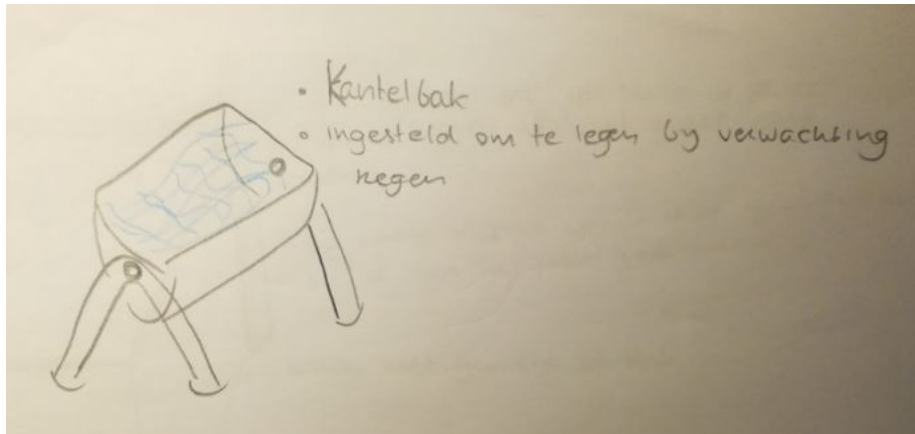 • Kantelbak
• ingesteld om te legen by verwachting
regen